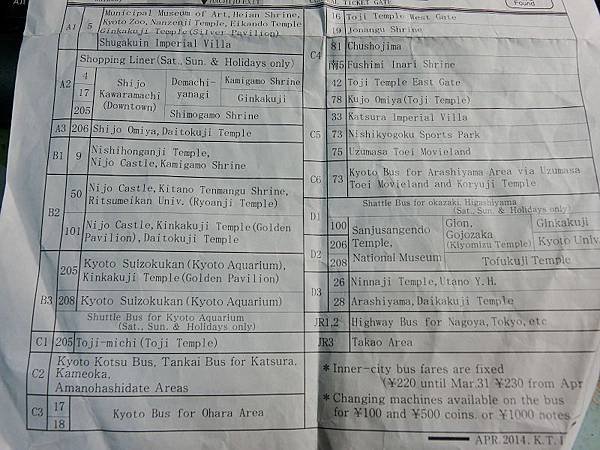 TICKET GATE
Found
A1
5
Municipal Museum of Art, Heian Shrine,
Kyoto Zoo, Nanzenji Temple, Eikando Temple
Ginkakuji Temple(Silver Pavilion)
Shugakuin Imperial Villa
A2
Shopping Liner(Sat., Sun. & Holidays only)
4
17
205
Shijo
Kawaramachi
(Downtown)
Demachi-
yanagi
Kamigamo Shrine
Ginkakuji
Shimogamo Shrine
A3 206 Shijo Omiya, Daitokuji Temple
B1
9
Nishihonganji Temple,
Nijo Castle, Kamigamo Shrine
B2
50
Nijo Castle, Kitano Tenmangu Shrine,
Ritsumeikan Univ. (Ryoanji Temple)
101
Nijo Castle, Kinkakuji Temple(Golden
Pavilion), Daitokuji Temple
B3
205
Kyoto Suizokukan(Kyoto Aquarium),
Kinkakuji Temple(Golden Pavilion)
208 Kyoto Suizokukan (Kyoto Aquarium)
Shuttle Bus for Kyoto Aquarium
(Sat., Sun. & Holidays only)
C1 205 Toji-michi(Toji Temple)
C2
Kyoto Kotsu Bus, Tankai Bus for Katsura,
Kameoka,
Amanohashidate Areas
C3
17
18
Kyoto Bus for Ohara Area
C4
16 Toji Temple West Gate
19 Jonangu Shrine
81 Chushojima
南5 Fushimi Inari Shrine
42 Toji Temple East Gate
78 Kujo Omiya(Toji Temple)
C5
33 Katsura Imperial Villa
73 Nishikyogoku Sports Park
75 Uzumasa Toei Movieland
C6
73
Kyoto Bus for Arashiyama Area via Uzumasa
Toei Movieland and Koryuji Temple
D1
Shuttle Bus for okazaki, Higashiyama
(Sat., Sun. & Holidays only)
D2
100
206
208
Sanjusangendo
Temple,
National Museum
Gion,
Gojozaka
(Kiyomizu Temple)
Ginkakuji
Kyoto Univ.
Tofukuji Temple
D3
26 Ninnaji Temple, Utano Y.H.
28 Arashiyama, Daikakuji Temple
JR1,2 Highway Bus for Nagoya, Tokyo, etc
JR3 Takao Area
* Inner-city bus fares are fixed
(¥220 until Mar.31 ¥230 from Apr
* Changing machines available on the bus
for ¥100 and ¥500 coins, or ¥1000 notes
APR. 2014. K.T.I